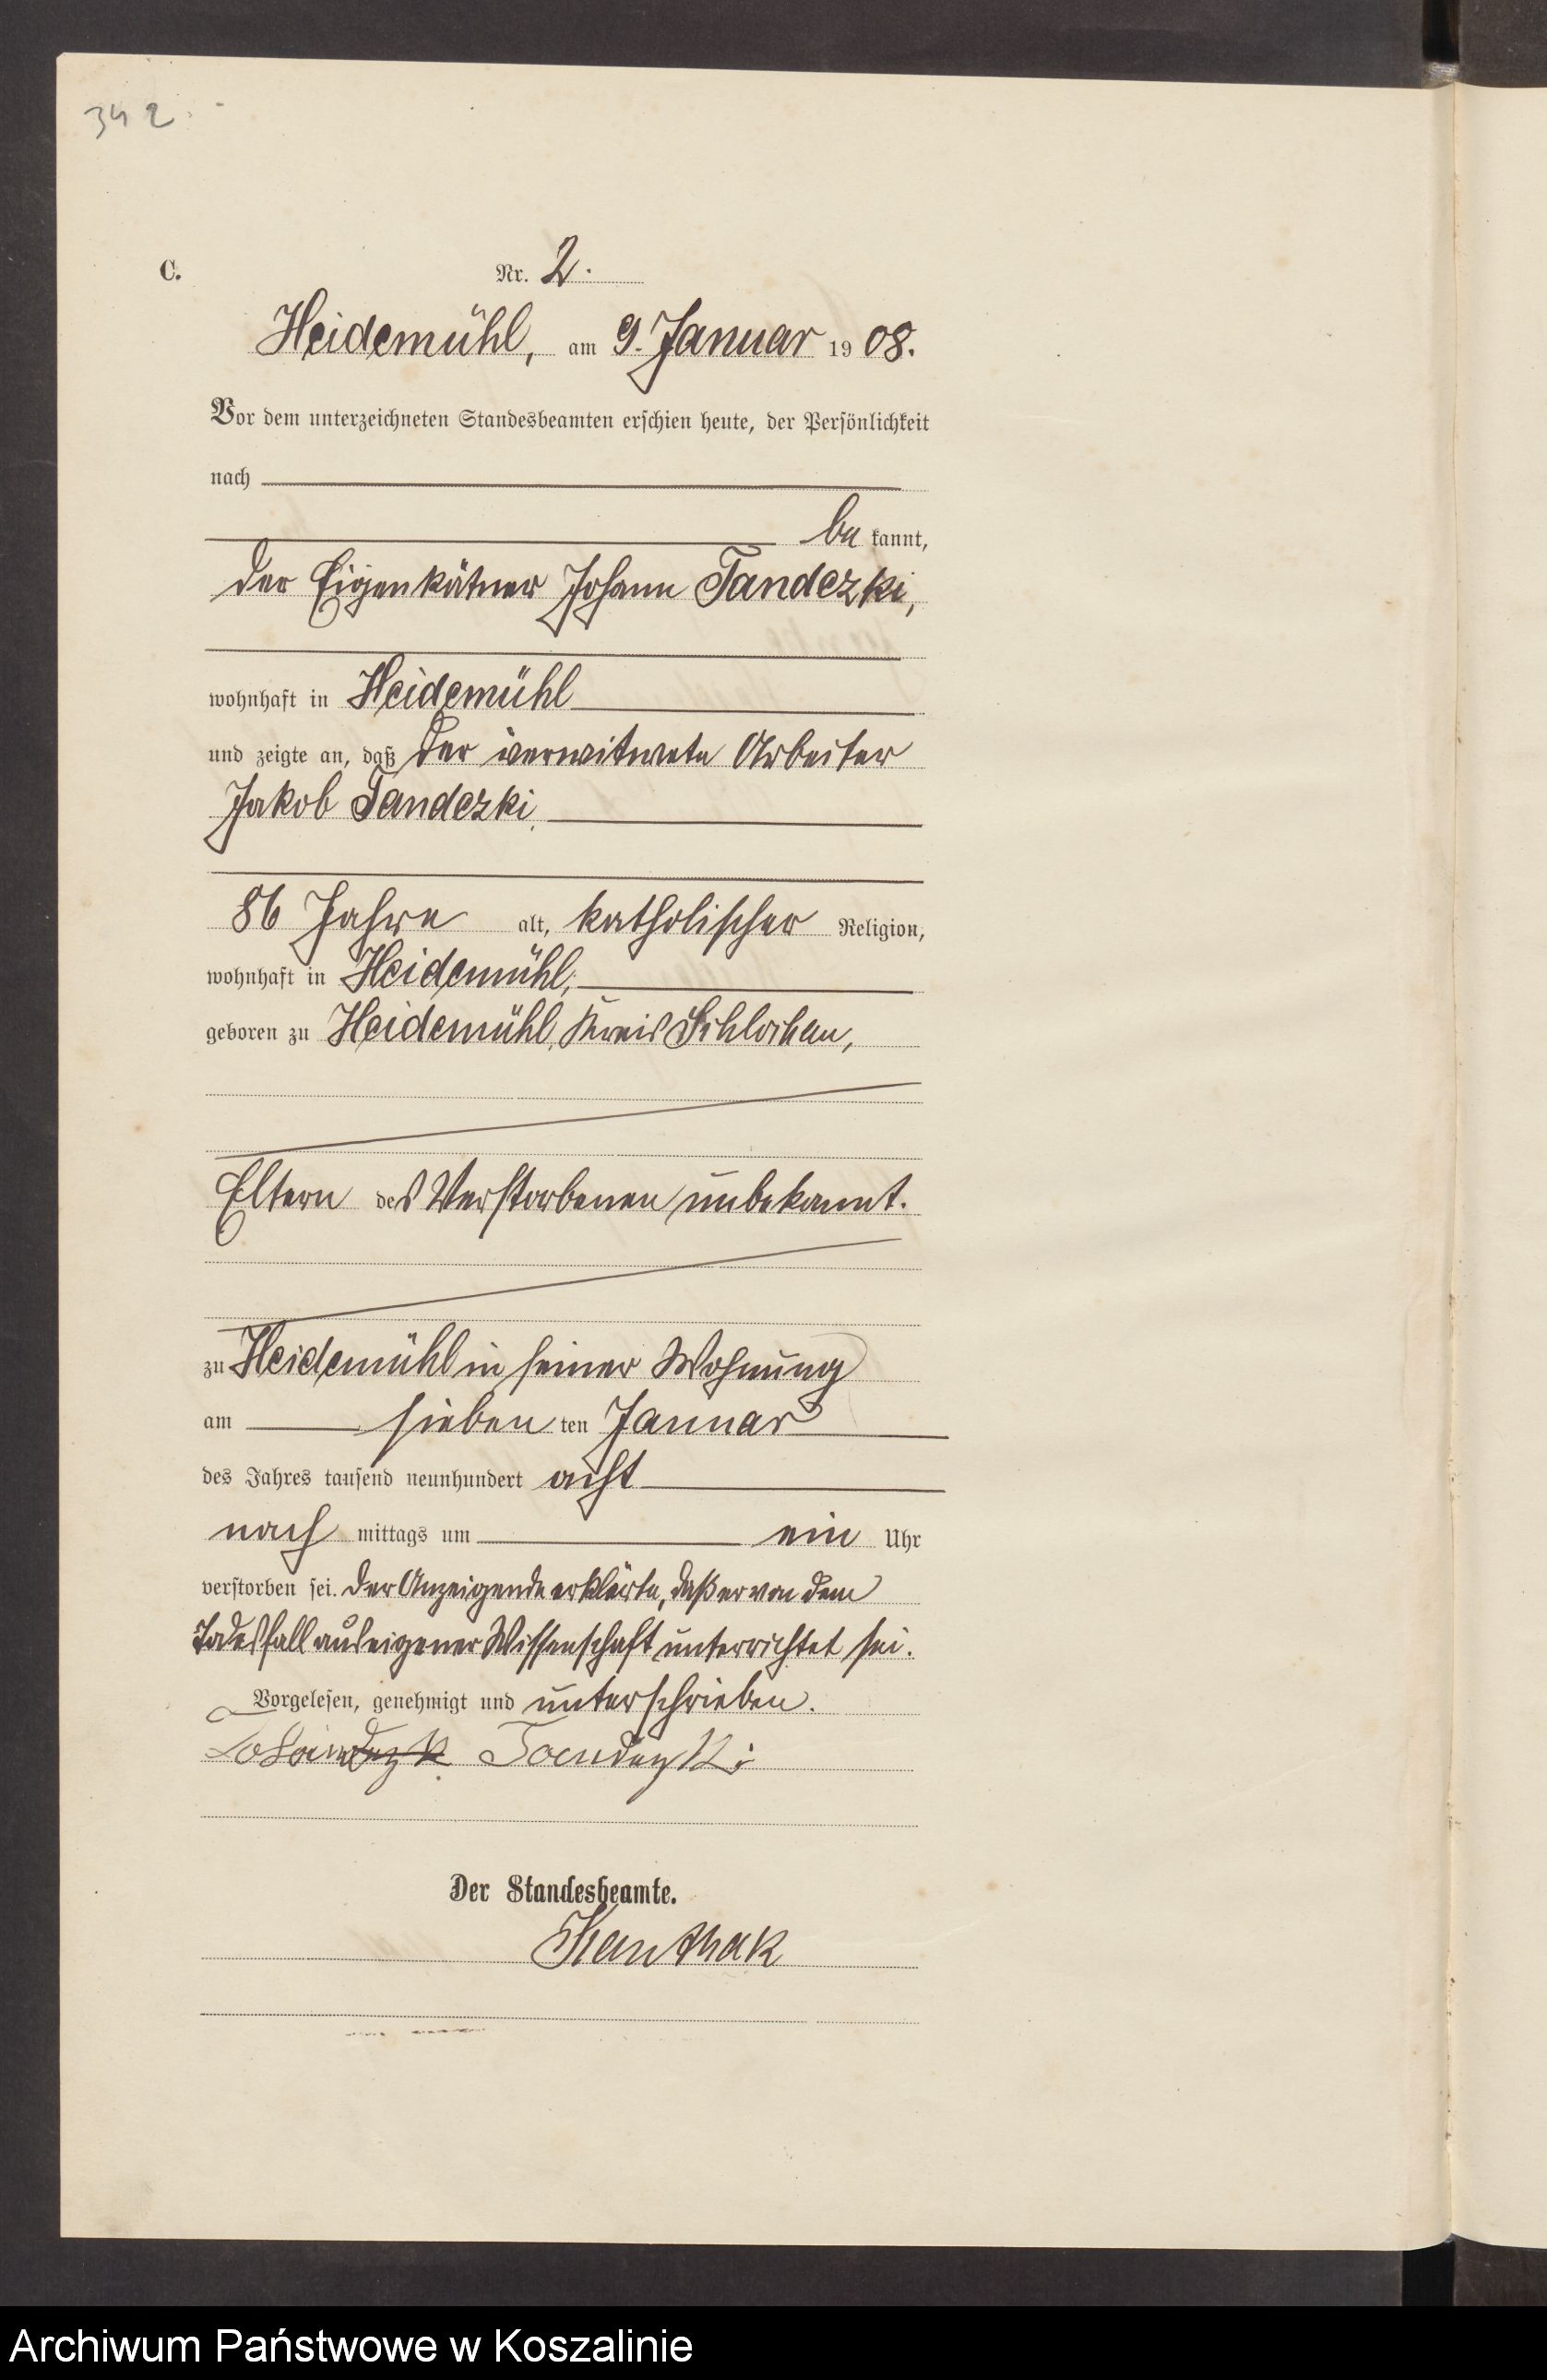 342.
C.
Nr. 2.
Heidemühl, am 9. Januar 1908.
Vor dem unterzeichneten Standesbeamten erschien heute, der Persönlichkeit
nach
be kannt,
der Eigenkätner Johann Tandezki,
wohnhaft in Heidemühl
und zeigte an, daß der verwitwete Arbeiter
Jakob Tandezki,
86 Jahre alt, katholischer Religion,
wohnhaft in Heidemühl,
geboren zu Heidemühl, Kreis Schlochau,
Eltern des Verstorbenen unbekannt.
zu Heidemühl in seiner Wohnung
am sieben ten Januar
des Jahres tausend neunhundert acht
nach mittags um ein Uhr
verstorben sei. Der Anzeigende erklärte, daß er von dem
Todesfall aus eigener Wissenschaft unterrichtet sei.
Vorgelesen, genehmigt und unterschrieben.
Tandezki
Der Standesbeamte.
Kanthak
Archiwum Państwowe w Koszalinie